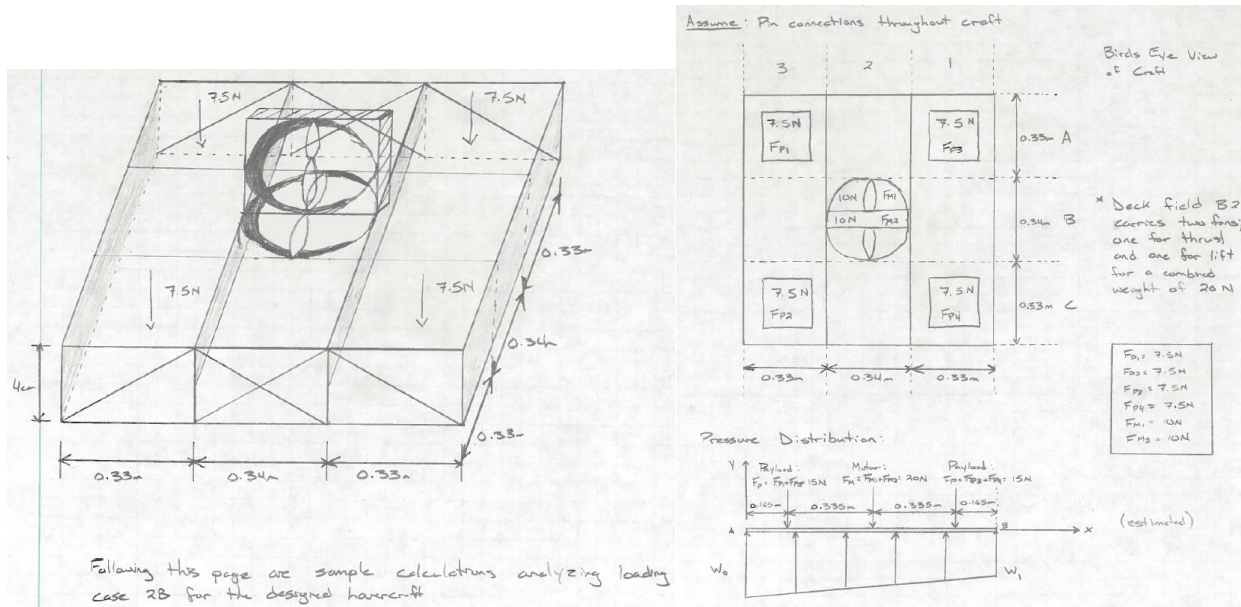 7.5N
7.5N
7.5N
7.5N
0.33m
0.34m
0.33m
4cm
0.33m
0.34m
0.33m
Following this page are sample calculations analyzing loading
case 2B for the designed hovercraft
Assume: Pin connections throughout craft
Birds Eye View
of Craft
3
2
1
7.5N
FP1
7.5N
FP3
0.33m A
10N
FM1
10N
FM2
0.34m B
7.5N
FP2
7.5N
FP4
0.33m C
0.33m
0.34m
0.33m
* Deck field B2
carries two fans;
one for thrust
and one for lift
for a combined
weight of 20N
FP1 = 7.5N
FP2 = 7.5N
FP3 = 7.5N
FP4 = 7.5N
FM1 = 10N
FM2 = 10N
Pressure Distribution:
Y
Payload:
Motor:
Payload:
15N
FM = FM1+FM2 = 20N
15N
0.165m
0.335m
0.335m
0.165m
A
B
x
W0
W1
(estimated)